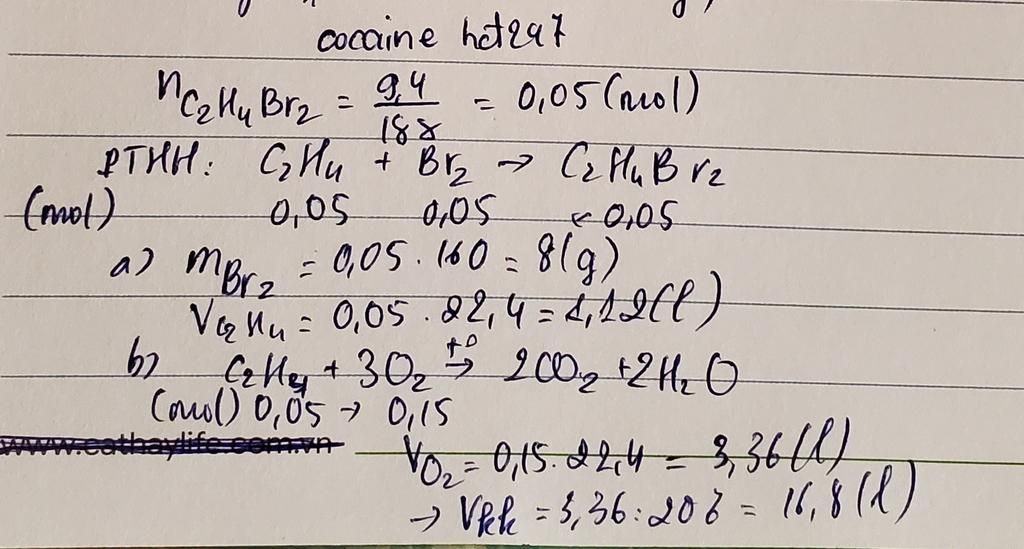 cocaine hct247
nC2H4Br2 = 9,4/188 = 0,05 (mol)
PTHH: C2H4 + Br2 → C2H4Br2
(mol) 0,05 0,05 ← 0,05
a) mBr2 = 0,05 . 160 = 8(g)
VC2H4 = 0,05 . 22,4 = 1,12(l)
b) C2H4 + 3O2 t° → 2CO2 + 2H2O
(mol) 0,05 → 0,15
www.cathaylife.com.vn
VO2 = 0,15. 22,4 = 3,36 (l)
→ Vkk = 3,36 : 20% = 16,8 (l)